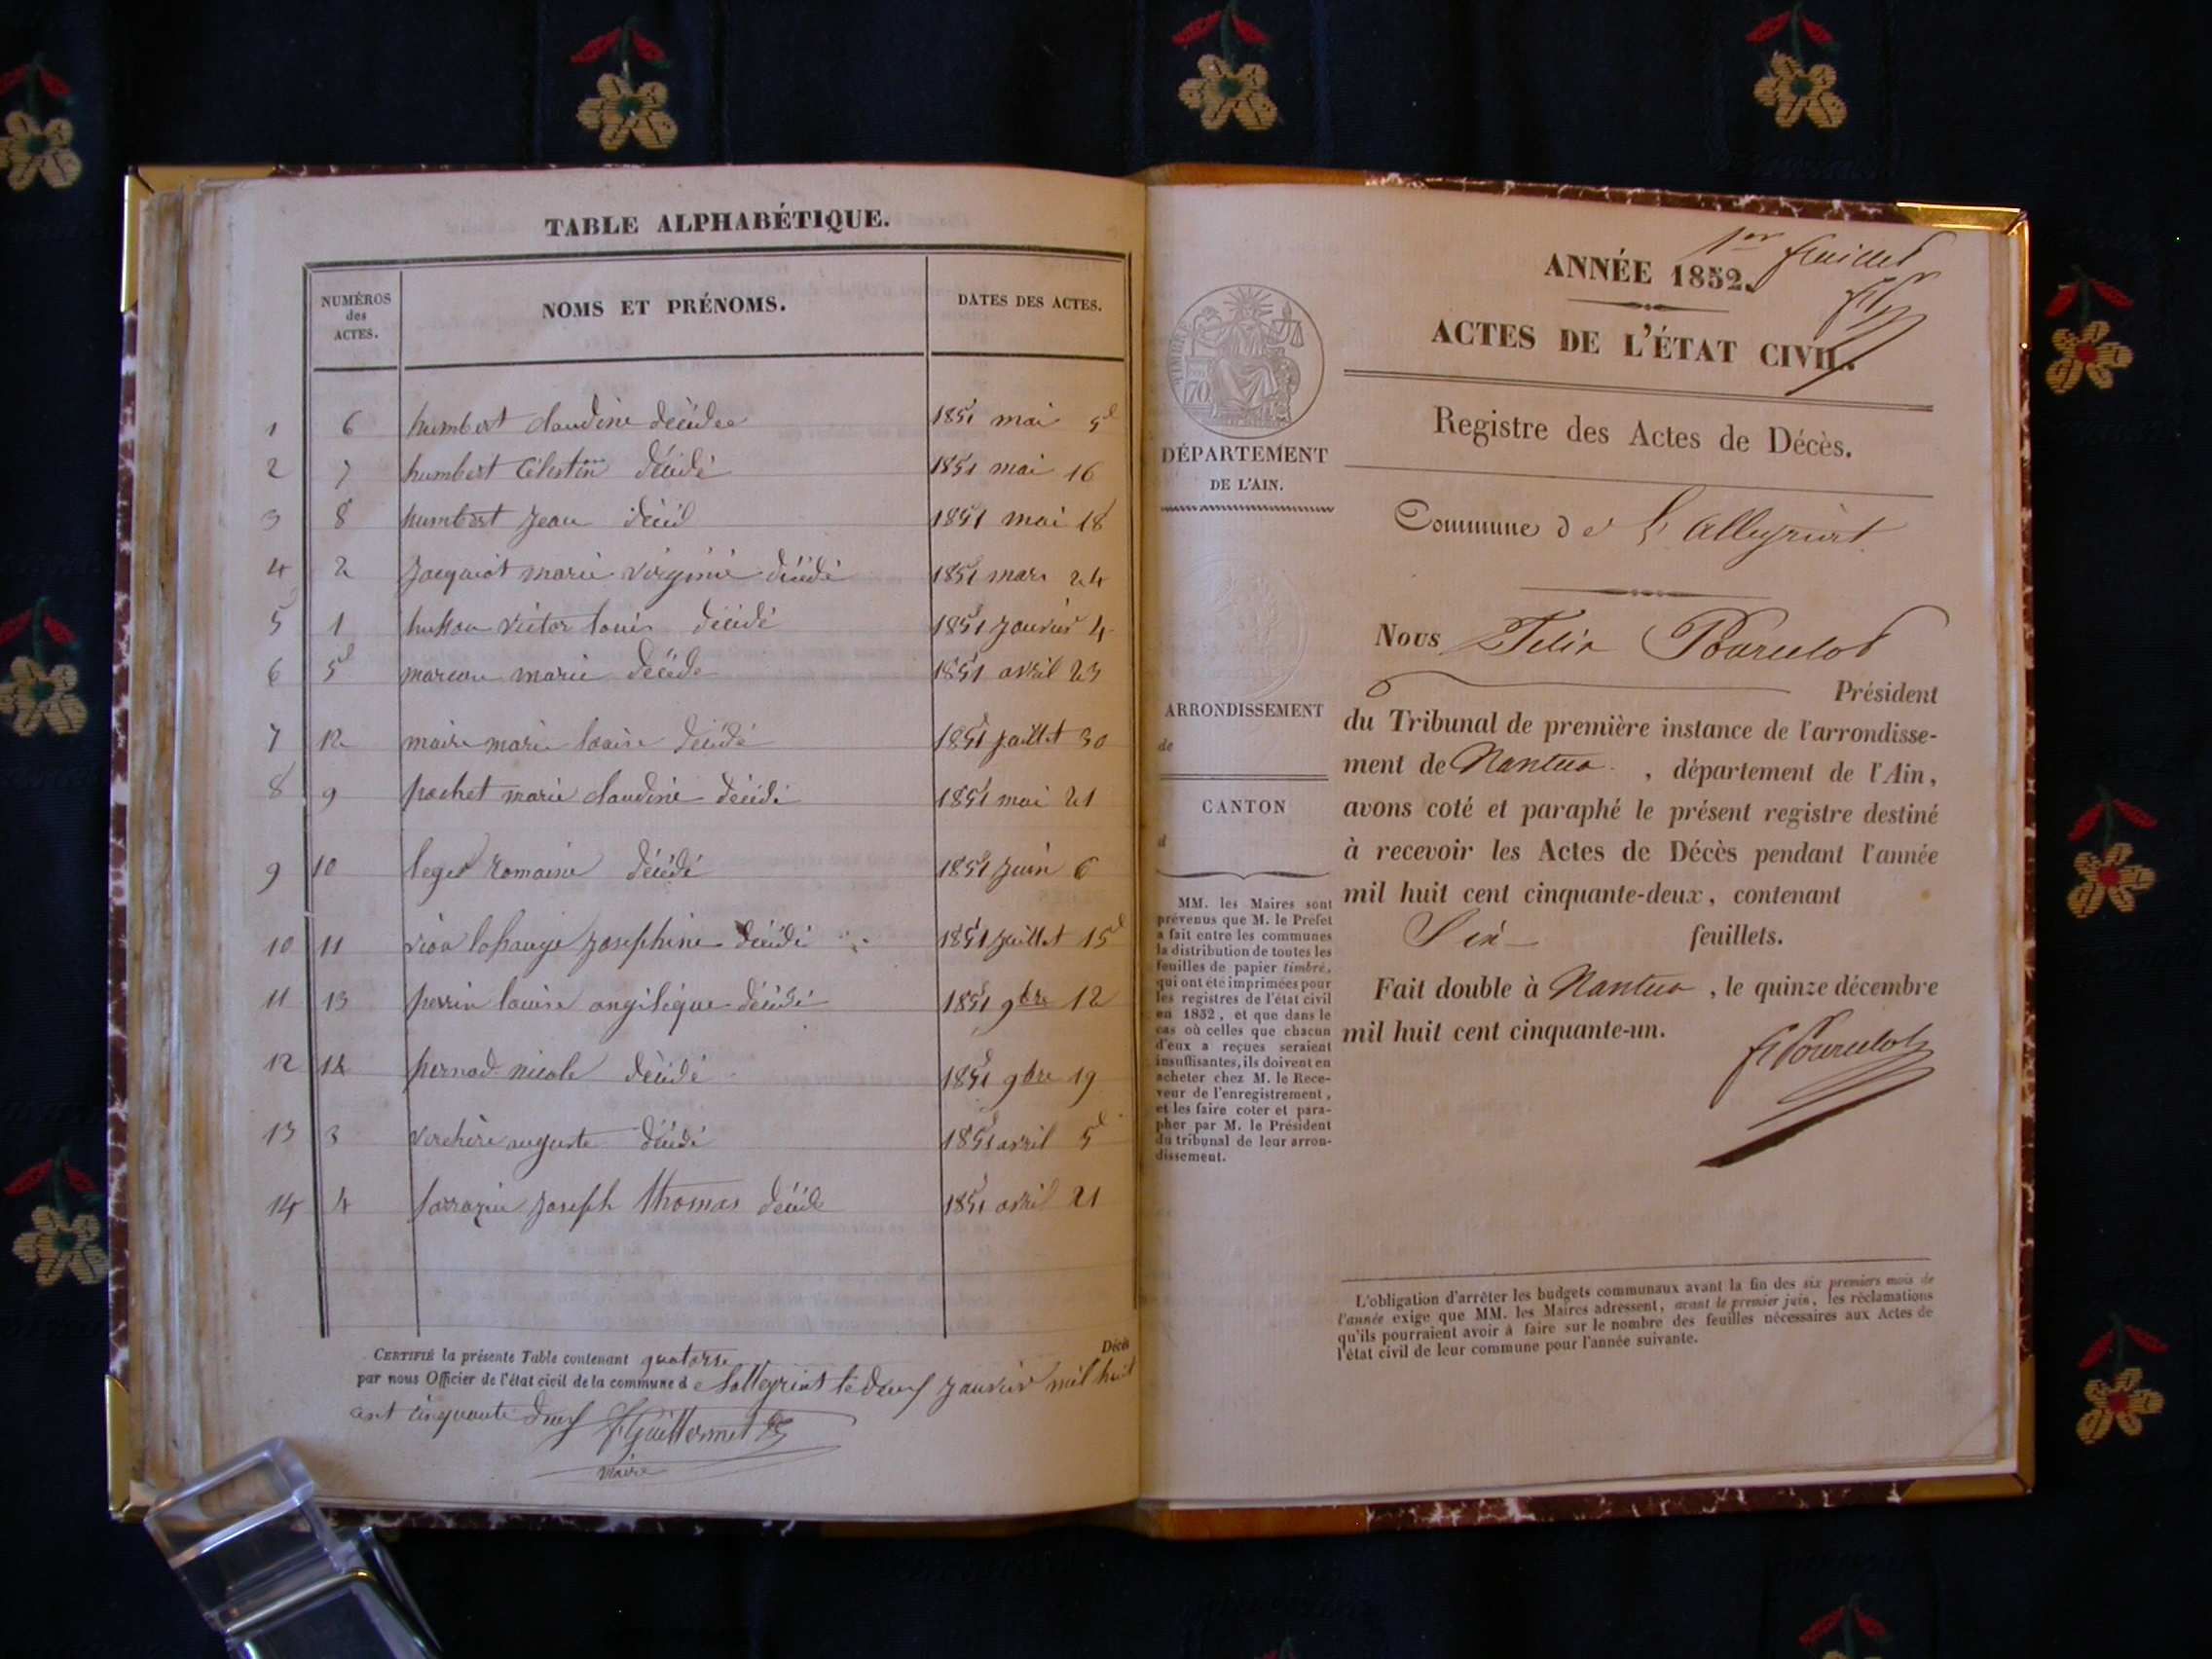 TABLE ALPHABÉTIQUE.
NUMÉROS
des
ACTES.
NOMS ET PRÉNOMS.
DATES DES ACTES.
1 6 humbert claudine décédee 1851 mai 5
2 7 humbert Célestin décédé 1851 mai 16
3 8 humbert Jean décéd 1851 mai 18
4 2 Jacquiot marie virginie décédé 1851 mars 24
5 1 victor louis décédé 1851 janvier 4
6 5 marie décéde 1851 avril 23
7 12 maire marie louise décédé 1851 juillet 30
8 9 pochet marie claudine décédé 1851 mai 21
9 10 leger romaine décédé 1851 juin 6
10 11 Josephine décédé 1851 juillet 15
11 13 perrin louise angélique décédé 1851 9bre 12
12 14 nicole décédé 1851 9bre 19
13 3 verchère auguste décédé 1851 avril 5
14 4 Joseph thomas décéde 1851 avril 21
Décès
CERTIFIÉ la présente Table contenant quatorse
par nous Officier de l'état civil de la commune de Lalleyriat le deux janvier mil huit
cent cinquante deux Guillermet
maire
1er feuillet
ANNÉE 1852.
ACTES DE L'ÉTAT CIVIL.
Registre des Actes de Décès.
Commune de Lalleyriat
TIMBRE
70
DÉPARTEMENT
DE L'AIN.
ARRONDISSEMENT
de
CANTON
d
MM. les Maires sont
prévenus que M. le Préfet
a fait entre les communes
la distribution de toutes les
feuilles de papier timbré,
qui ont été imprimées pour
les registres de l'état civil
en 1852, et que dans le
cas où celles que chacun
d'eux a reçues seraient
insuffisantes, ils doivent en
acheter chez M. le Rece-
veur de l'enregistrement,
et les faire coter et para-
pher par M. le Président
du tribunal de leur arron-
dissement.
Nous Félix Pourcelot
Président
du Tribunal de première instance de l'arrondisse-
ment de Nantua, département de l'Ain,
avons coté et paraphé le présent registre destiné
à recevoir les Actes de Décès pendant l'année
mil huit cent cinquante-deux, contenant
Six feuillets.
Fait double à Nantua, le quinze décembre
mil huit cent cinquante-un.
F. Pourcelot
L'obligation d'arrêter les budgets communaux avant la fin des six premiers mois de
l'année exige que MM. les Maires adressent, avant le premier juin, les réclamations
qu'ils pourraient avoir à faire sur le nombre des feuilles nécessaires aux Actes de
l'état civil de leur commune pour l'année suivante.